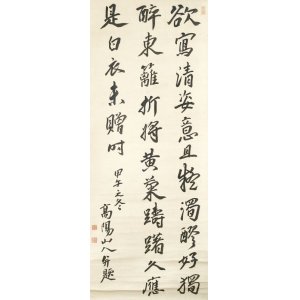 欲寫清姿意且難濁醪好獨
醉東籬折將黃菊躊躇久應
是白衣未贈时
甲午之冬
高陽山人并題